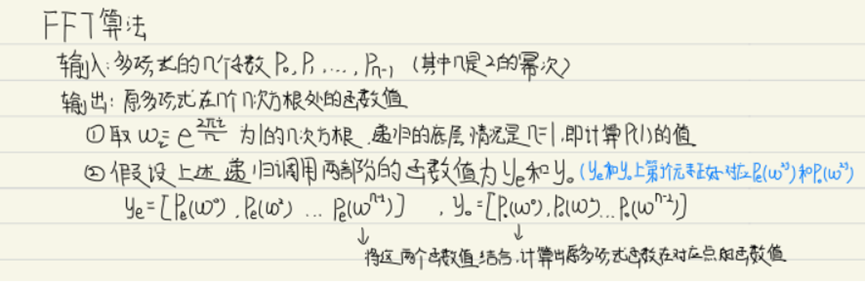 FFT算法
输入:多项式的n个系数 P₀,P₁,...,Pₙ₋₁ (其中n是2的幂次)
输出:原多项式在n个n次方根处的函数值
① 取 ω = e^(2πi/n) 为1的n次方根,递归的底层情况是n=1,即计算P(1)的值
② 假设上述递归调用两部份的函数值为 yₑ和yₒ (yₑ和yₒ上第j个元素正好对应Pₑ(ω^(2j))和Pₒ(ω^(2j)))
yₑ=[Pₑ(ω⁰),Pₑ(ω²) ... Pₑ(ω^(n-2))] , yₒ=[Pₒ(ω⁰),Pₒ(ω²)...Pₒ(ω^(n-2))]
↓ ↓
将这两个函数值结合,计算出原多项式函数在对应点的函数值